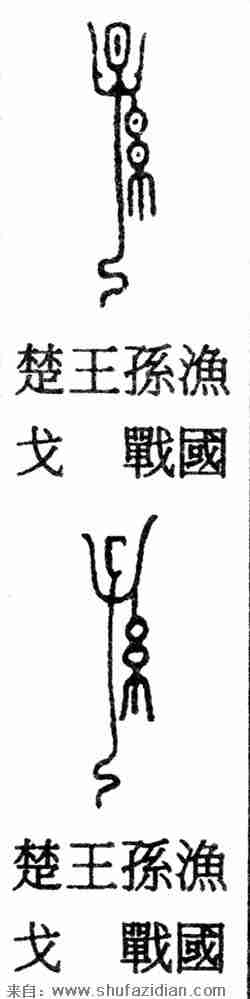 楚王孫漁
戈　戰國
楚王孫漁
戈　戰國
来自：www.shufazidian.com